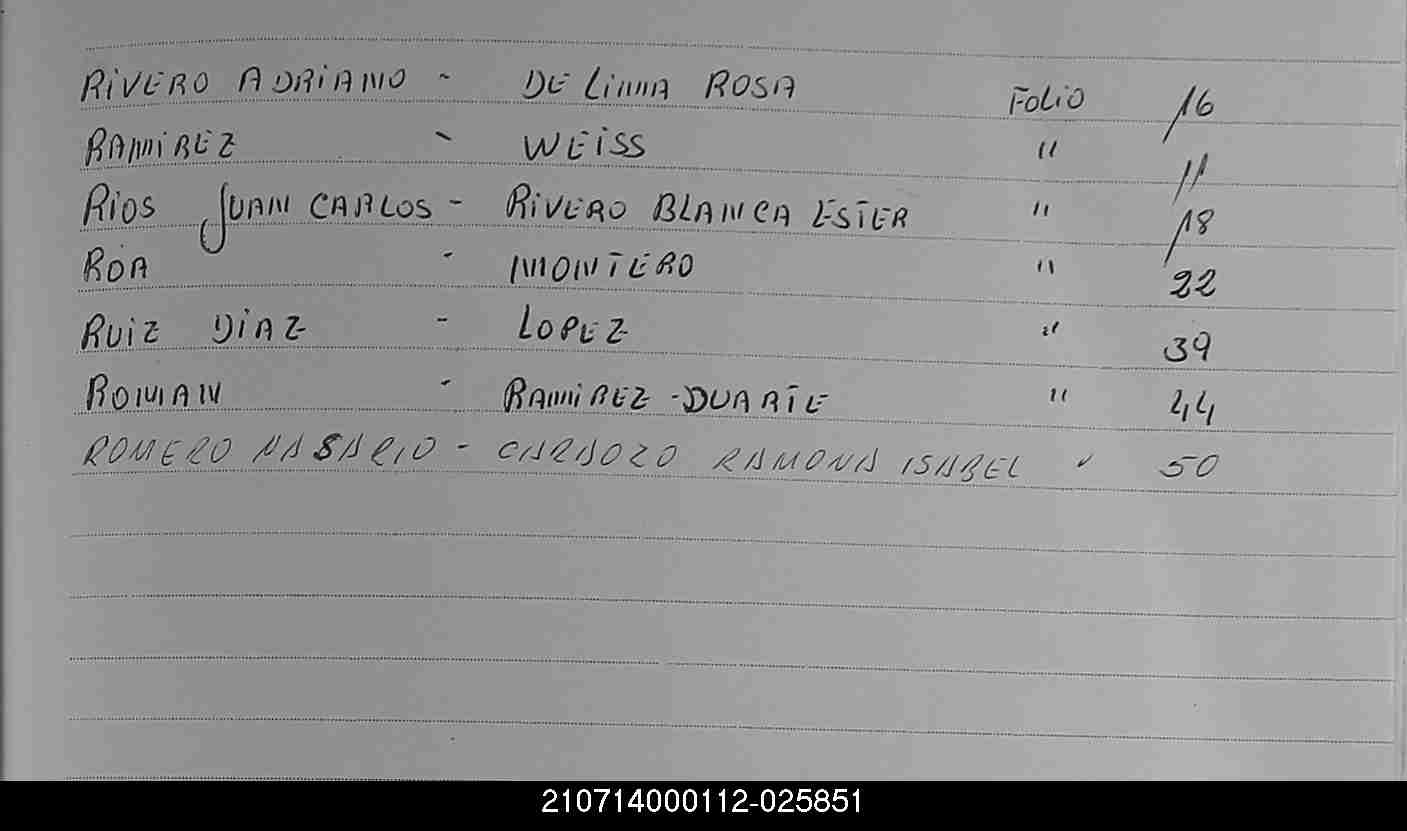 RIVERO ADRIANO - DE LIMA ROSA FOLIO 16
RAMIREZ - WEISS " 11
RIOS JUAN CARLOS - RIVERO BLANCA ESTER " 18
ROA - MONTERO " 22
RUIZ DIAZ - LOPEZ " 39
ROMAN - RAMIREZ - DUARTE " 44
ROMERO NASARIO - CARDOZO RAMONA ISABEL " 50
210714000112-025851